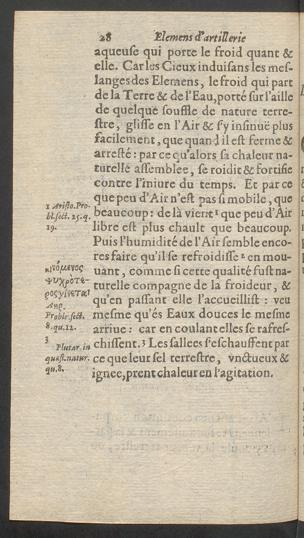 28 Elemens d'artillerie
aqueuse qui porte le froid quant &
elle. Car les Cieux induisans les mes-
langes des Elemens, le froid qui part
de la Terre & de l'Eau, porté sur l'aille
de quelque souffle de nature terre-
stre, glisse en l'Air & s'y insinuë plus
facilement, que quand il est ferme &
arresté : par ce qu'alors sa chaleur na-
turelle assemblee, se roidit & fortifie
contre l'iniure du temps. Et par ce
que peu d'Air n'est pas si mobile, que
beaucoup : de là vient 1 que peu d'Air
libre est plus chault que beaucoup.
Puis l'humidité de l'Air semble enco-
res faire qu'il se refroidisse 2 en mou-
uant, comme si cette qualité fust na-
turelle compagne de la froideur, &
qu'en passant elle l'accueillist : veu
mesme qu'és Eaux douces le mesme
arriue : car en coulant elles se rafres-
chissent. 3 Les sallees s'eschauffent par
ce que leur sel terrestre, vnctueux &
ignee, prent chaleur en l'agitation.
1 Aristo. Pro-
bl. sect. 25. q.
19.
κινόμενος
ψυχρότε-
ρος γίνεται
Ἀηρ.
Probl. sect.
8. qu. 12.
3
Plutar. in
quæst. natur.
qu. 8.